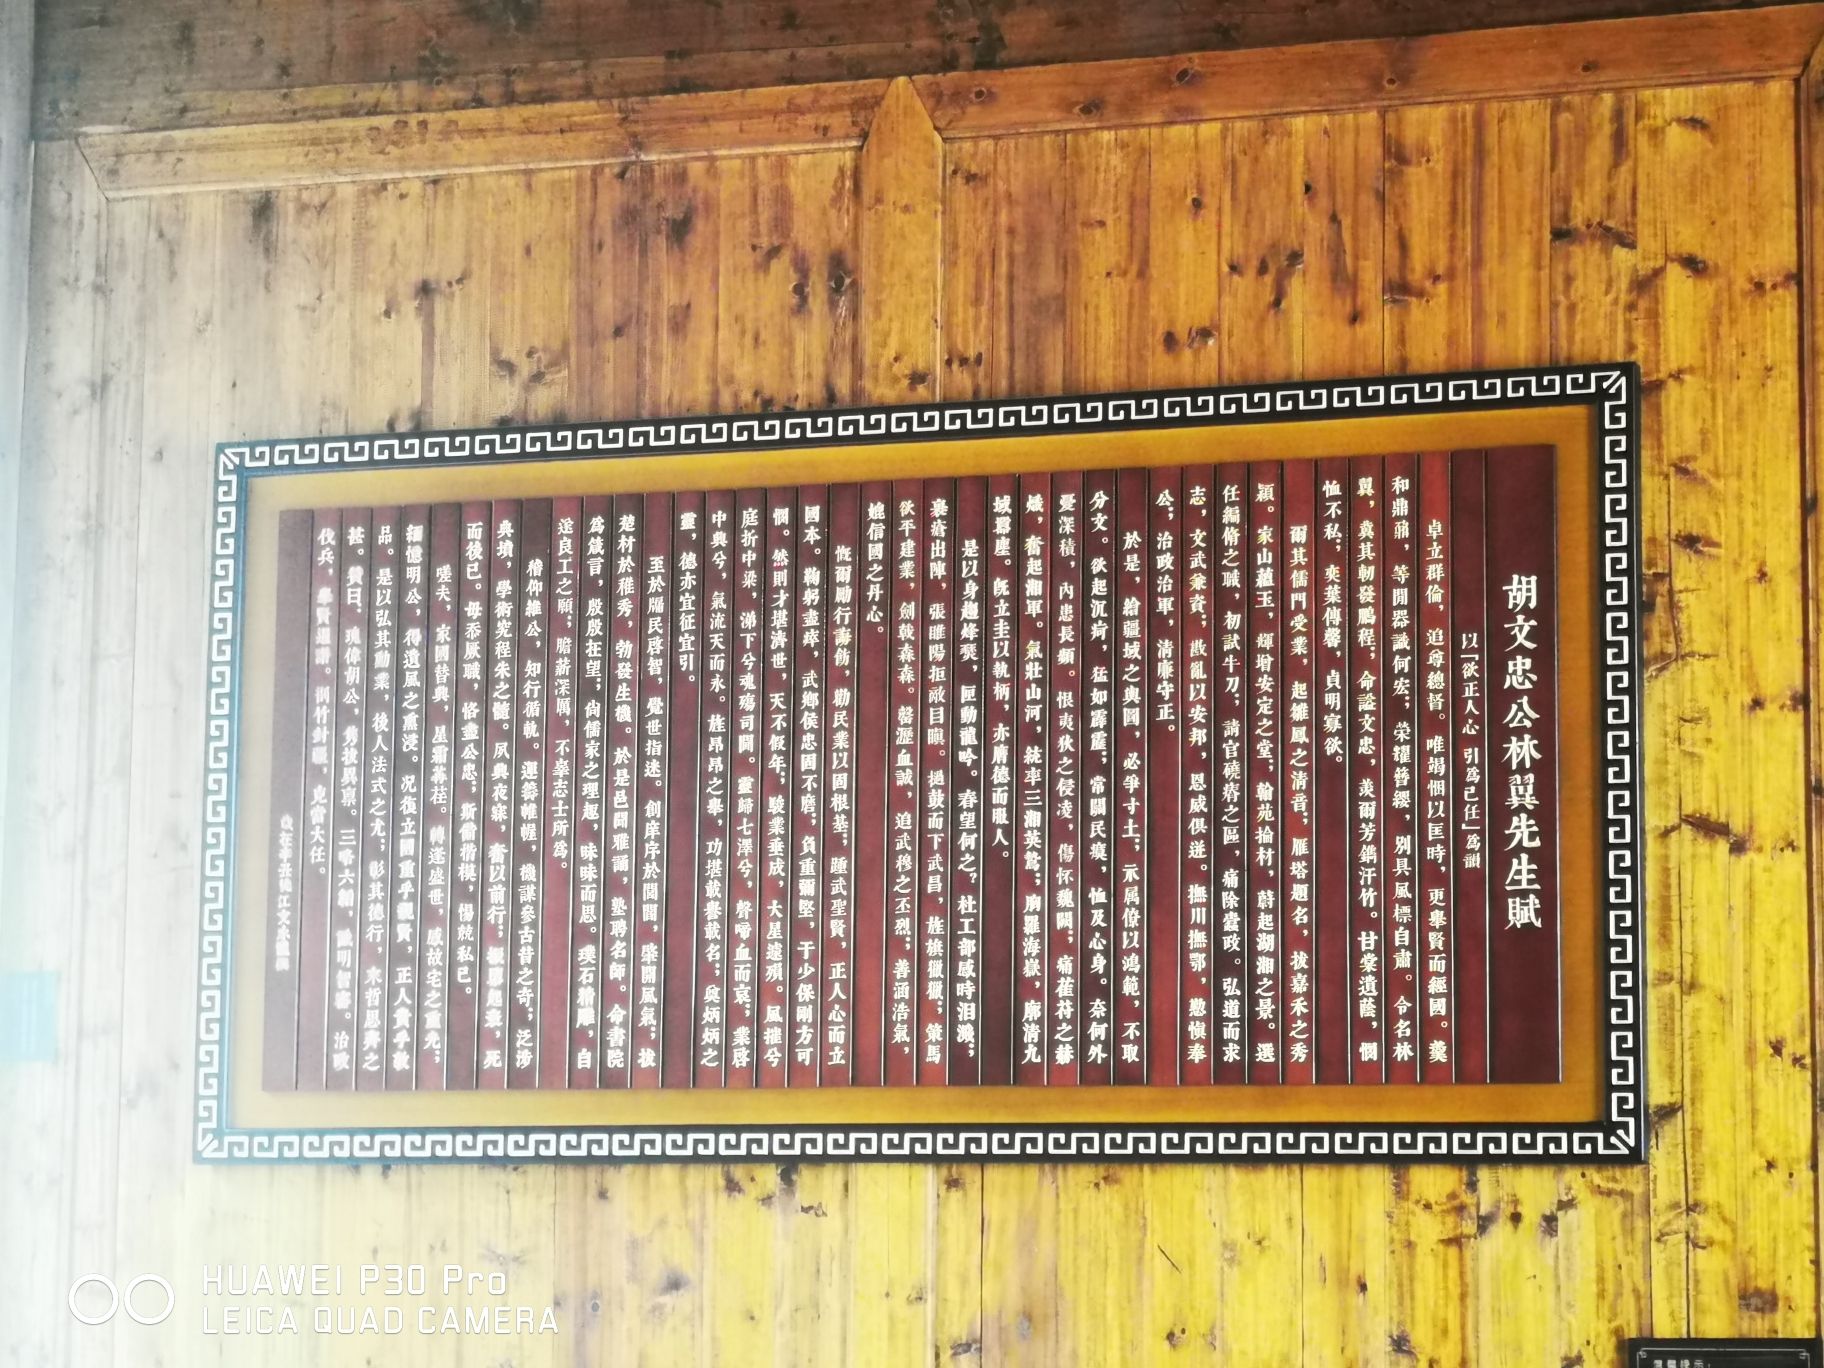 胡文忠公林翼先生賦
以「欲正人心 引為己任」為韻
卓立群倫，追尊總督。唯竭悃以匡時，更舉賢而經國。羹
和鼎鼐，等閒器識何宏；榮耀簪纓，別具風標自肅。令名林
翼，冀其軔發鵬程；命謚文忠，羨爾芳鐫汗竹。甘棠遺蔭，憫
恤不私；奕葉傳馨，貞明寡欲。
爾其儒門受業，起雛鳳之清音；雁塔題名，拔嘉禾之秀
穎。家山蘊玉，輝增安定之堂；翰苑掄材，蔚起湖湘之景。選
任編脩之職，初試牛刀；請官磽瘠之區，痛除蠹政。弘道而求
志，文武兼資；戡亂以安邦，恩威俱迸。撫川撫鄂，懃慎奉
公；治政治軍，清廉守正。
於是，繪疆域之輿圖，必爭寸土；示属僚以鴻範，不取
分文。欲起沉疴，猛如霹靂；常關民瘼，恤及心身。奈何外
憂深積，內患長頻。恨夷狄之侵凌，傷怀魏闕；痛萑苻之赫
熾，奮起湘軍。氣壯山河，統率三湘英鷙；胸羅海嶽，廓清九
域囂塵。既立圭以執柄，亦膺德而服人。
是以身趨烽燹，匣動龍吟。春望何之？杜工部感時泪濺；
裹瘡出陣，張睢陽拒敵目瞋。撾鼓而下武昌，旌旗獵獵；策馬
欲平建業，劍戟森森。罄瀝血誠，追武穆之丕烈；善涵浩氣，
媲信國之丹心。
慨爾勵行壽飭，勸民業以固根基；踵武聖賢，正人心而立
國本。鞠躬盡瘁，武鄉侯忠固不磨；負重彌堅，于少保剛方可
憫。然則才堪濟世，天不假年；駿業垂成，大星遽殞。風摧兮
庭折中梁，涕下兮魂殤司閫。靈歸七澤兮，聲啼血而哀；業啓
中興兮，氣流天而永。旌昂昂之舉，功堪載譽載名；奐炳炳之
靈，德亦宜征宜引。
至於牖民啓智，覺世指迷。創庠序於閭閻，肇開風氣；拔
楚材於稚秀，勃發生機。於是邑閭雅誦，塾聘名師。命書院
為箴言，殷殷在望；尚儒家之理趣，昧昧而思。璞石精雕，自
達良工之願；膽薪深厲，不辜志士所為。
稽仰維公，知行循軌。運籌帷幄，機謀參古昔之奇；泛涉
典墳，學術究程朱之髓。夙興夜寐，奮以前行；振廢起衰，死
而後已。毋忝厥職，恪盡公忠；斯儕楷模，惕兢私己。
嗟夫，家國替興，星霜苒荏。轉逢盛世，感故宅之重光；
緬憶明公，得遺風之熏浸。況復立國重乎親賢，正人貴乎敦
品。是以弘其勳業，後人法式之尤；彰其德行，來哲思齊之
甚。贊曰：瑰偉胡公，雋拔異稟。三略六韜，識明智審。治政
伐兵，舉賢遏譖。
克當大任。